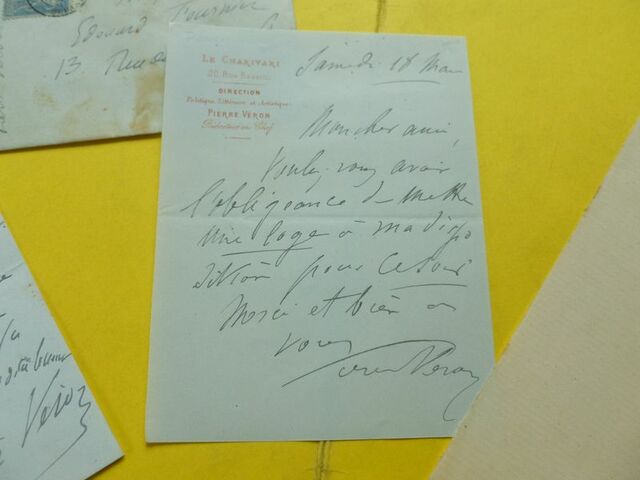 Edouard Fournier
13 Rue de
LE CHARIVARI
20, Rue Bergère
DIRECTION
Politique Littéraire et Artistique
PIERRE VÉRON
Rédacteur en Chef
Samedi 18 Mars
Mon cher ami,
Voulez-vous avoir
l'obligeance de mettre
une loge à ma dispo
sition pour ce soir
Merci et bien à
vous
Pierre Véron
Véron